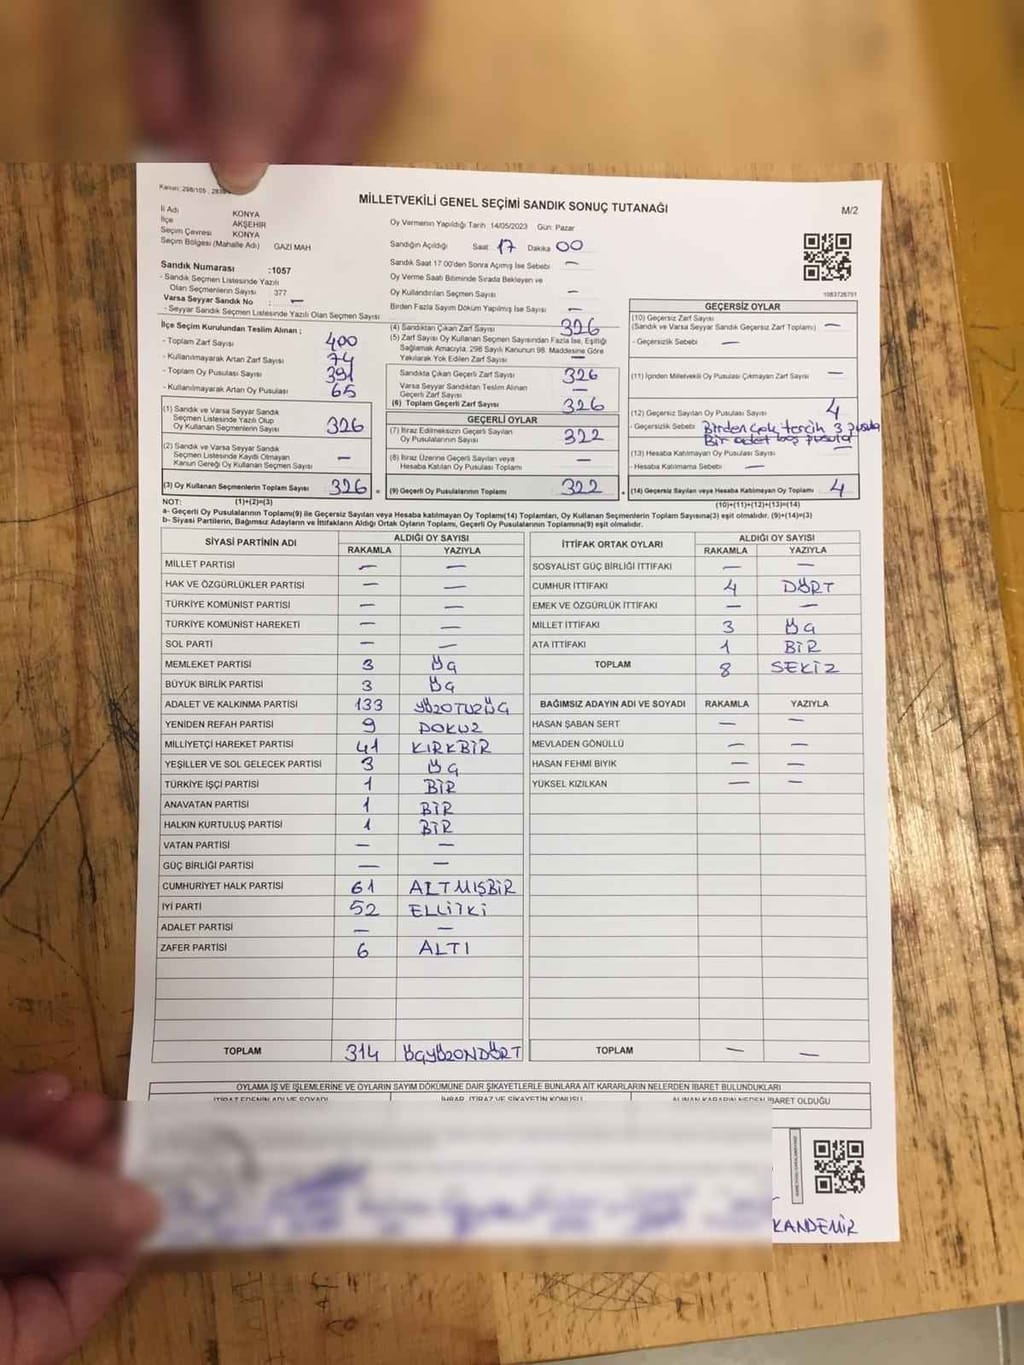 Kanun: 298/105 ; 2839
MİLLETVEKİLİ GENEL SEÇİMİ SANDIK SONUÇ TUTANAĞI
M/2
İl Adı KONYA
İlçe AKŞEHİR
Seçim Çevresi KONYA
Seçim Bölgesi (Mahalle Adı) GAZİ MAH
Oy Vermenin Yapıldığı Tarih 14/05/2023 Gün: Pazar
Sandığın Açıldığı Saat 17 Dakika 00
Sandık Saat 17:00'den Sonra Açmış İse Sebebi —
Oy Verme Saati Bitiminde Sırada Bekleyen ve
Oy Kullandırılan Seçmen Sayısı —
Birden Fazla Sayım Döküm Yapılmış İse Sayısı —
Sandık Numarası :1057
- Sandık Seçmen Listesinde Yazılı
Olan Seçmenlerin Sayısı : 377
Varsa Seyyar Sandık No : —
- Seyyar Sandık Seçmen Listesinde Yazılı Olan Seçmen Sayısı
İlçe Seçim Kurulundan Teslim Alınan ;
- Toplam Zarf Sayısı 400
- Kullanılmayarak Artan Zarf Sayısı 74
- Toplam Oy Pusulası Sayısı 391
- Kullanılmayarak Artan Oy Pusulası 65
(1) Sandık ve Varsa Seyyar Sandık
Seçmen Listesinde Yazılı Olup
Oy Kullanan Seçmenlerin Sayısı 326
(2) Sandık ve Varsa Seyyar Sandık
Seçmen Listesinde Kaydı Olmayan
Kanun Gereği Oy Kullanan Seçmen Sayısı —
(3) Oy Kullanan Seçmenlerin Toplam Sayısı 326 =
(4) Sandıktan Çıkan Zarf Sayısı 326
(5) Zarf Sayısı Oy Kullanan Seçmen Sayısından Fazla İse, Eşitliği
Sağlamak Amacıyla, 298 Sayılı Kanunun 98. Maddesine Göre
Yakılarak Yok Edilen Zarf Sayısı —
Sandıkta Çıkan Geçerli Zarf Sayısı 326
Varsa Seyyar Sandıktan Teslim Alınan
Geçerli Zarf Sayısı —
(6) Toplam Geçerli Zarf Sayısı 326
GEÇERLİ OYLAR
(7) İtiraz Edilmeksizin Geçerli Sayılan
Oy Pusulalarının Sayısı 322
(8) İtiraz Üzerine Geçerli Sayılan veya
Hesaba Katılan Oy Pusulası Toplamı —
(9) Geçerli Oy Pusulalarının Toplamı 322
1083726751
GEÇERSİZ OYLAR
(10) Geçersiz Zarf Sayısı
(Sandık ve Varsa Seyyar Sandık Geçersiz Zarf Toplamı) —
- Geçersizlik Sebebi —
(11) İçinden Milletvekili Oy Pusulası Çıkmayan Zarf Sayısı —
(12) Geçersiz Sayılan Oy Pusulası Sayısı 4
- Geçersizlik Sebebi Birden çok tercih 3 pusula
Bir adet boş pusula
(13) Hesaba Katılmayan Oy Pusulası Sayısı —
- Hesaba Katılmama Sebebi —
(14) Geçersiz Sayılan veya Hesaba Katılmayan Oy Toplamı 4
NOT: (1)+(2)=(3) (10)+(11)+(12)+(13)=(14)
a- Geçerli Oy Pusulalarının Toplamı(9) ile Geçersiz Sayılan veya Hesaba katılmayan Oy Toplamı(14) Toplamları, Oy Kullanan Seçmenlerin Toplam Sayısına(3) eşit olmalıdır. (9)+(14)=(3)
b- Siyasi Partilerin, Bağımsız Adayların ve İttifakların Aldığı Ortak Oyların Toplamı, Geçerli Oy Pusulalarının Toplamına(9) eşit olmalıdır.
SİYASİ PARTİNİN ADI ALDIĞI OY SAYISI
RAKAMLA YAZIYLA
MİLLET PARTİSİ — —
HAK VE ÖZGÜRLÜKLER PARTİSİ — —
TÜRKİYE KOMÜNİST PARTİSİ — —
TÜRKİYE KOMÜNİST HAREKETİ — —
SOL PARTİ — —
MEMLEKET PARTİSİ 3 ÜÇ
BÜYÜK BİRLİK PARTİSİ 3 ÜÇ
ADALET VE KALKINMA PARTİSİ 133 YÜZOTUZÜÇ
YENİDEN REFAH PARTİSİ 9 DOKUZ
MİLLİYETÇİ HAREKET PARTİSİ 41 KIRKBİR
YEŞİLLER VE SOL GELECEK PARTİSİ 3 ÜÇ
TÜRKİYE İŞÇİ PARTİSİ 1 BİR
ANAVATAN PARTİSİ 1 BİR
HALKIN KURTULUŞ PARTİSİ 1 BİR
VATAN PARTİSİ — —
GÜÇ BİRLİĞİ PARTİSİ — —
CUMHURİYET HALK PARTİSİ 61 ALTMIŞBİR
İYİ PARTİ 52 ELLİİKİ
ADALET PARTİSİ — —
ZAFER PARTİSİ 6 ALTI
TOPLAM 314 ÜÇYÜZONDÖRT
İTTİFAK ORTAK OYLARI ALDIĞI OY SAYISI
RAKAMLA YAZIYLA
SOSYALİST GÜÇ BİRLİĞİ İTTİFAKI — —
CUMHUR İTTİFAKI 4 DÖRT
EMEK VE ÖZGÜRLÜK İTTİFAKI — —
MİLLET İTTİFAKI 3 ÜÇ
ATA İTTİFAKI 1 BİR
TOPLAM 8 SEKİZ
BAĞIMSIZ ADAYIN ADI VE SOYADI RAKAMLA YAZIYLA
HASAN ŞABAN SERT — —
MEVLADEN GÖNÜLLÜ — —
HASAN FEHMİ BIYIK — —
YÜKSEL KIZILKAN — —
TOPLAM — —
OYLAMA İŞ VE İŞLEMLERİNE VE OYLARIN SAYIM DÖKÜMÜNE DAİR ŞİKAYETLERLE BUNLARA AİT KARARLARIN NELERDEN İBARET BULUNDUKLARI
İTİRAZ EDENİN ADI VE SOYADI İHBAR, İTİRAZ VE ŞİKAYETİN KONUSU ALINAN KARARIN NEDEN İBARET OLDUĞU
KANDEMİR